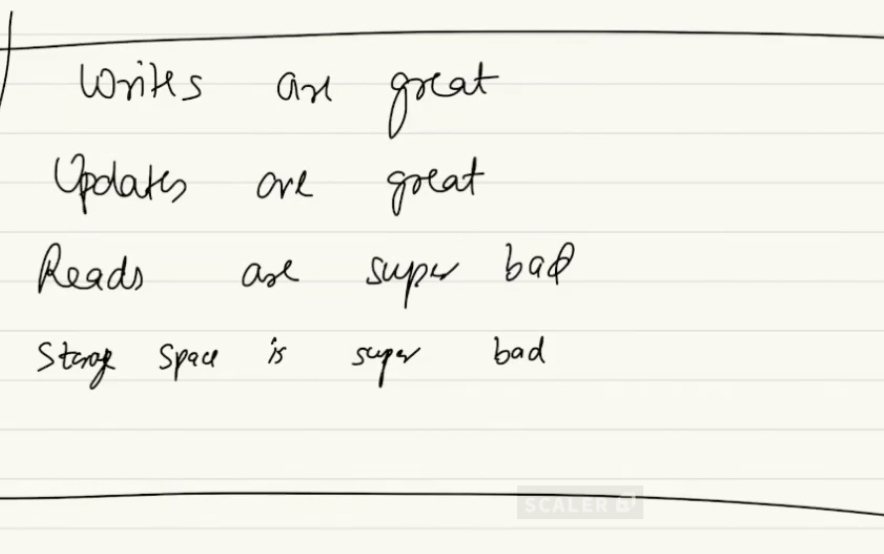 Writes are great
Updates are great
Reads are super bad
Storage space is super bad
SCALER